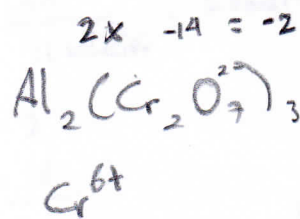 2x -14 = -2
Al₂(Cr₂O₇²⁻)₃
Cr⁶⁺